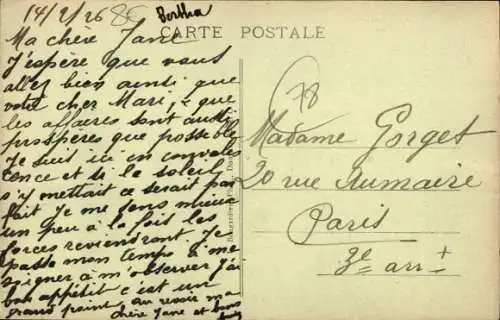 14/2/26 86 Bertha
CARTE POSTALE
Ma chère Jane
J'espère que vous
allez bien ainsi que
votre cher Mari, & que
les affaires sont aussi
prospères que possible
Je suis ici en convales
cence et si le soleil
s'y mettait ce serait par
fait Je me sens mieux
un peu à la fois les
forces reviendront. Je
passe mon temps à me
soigner à m'observer J'ai
bon appétit c'est un
grand point, au revoir ma
chère Jane et bons
78
Madame Gorget
20 rue Aumaire
Paris
3e arr +